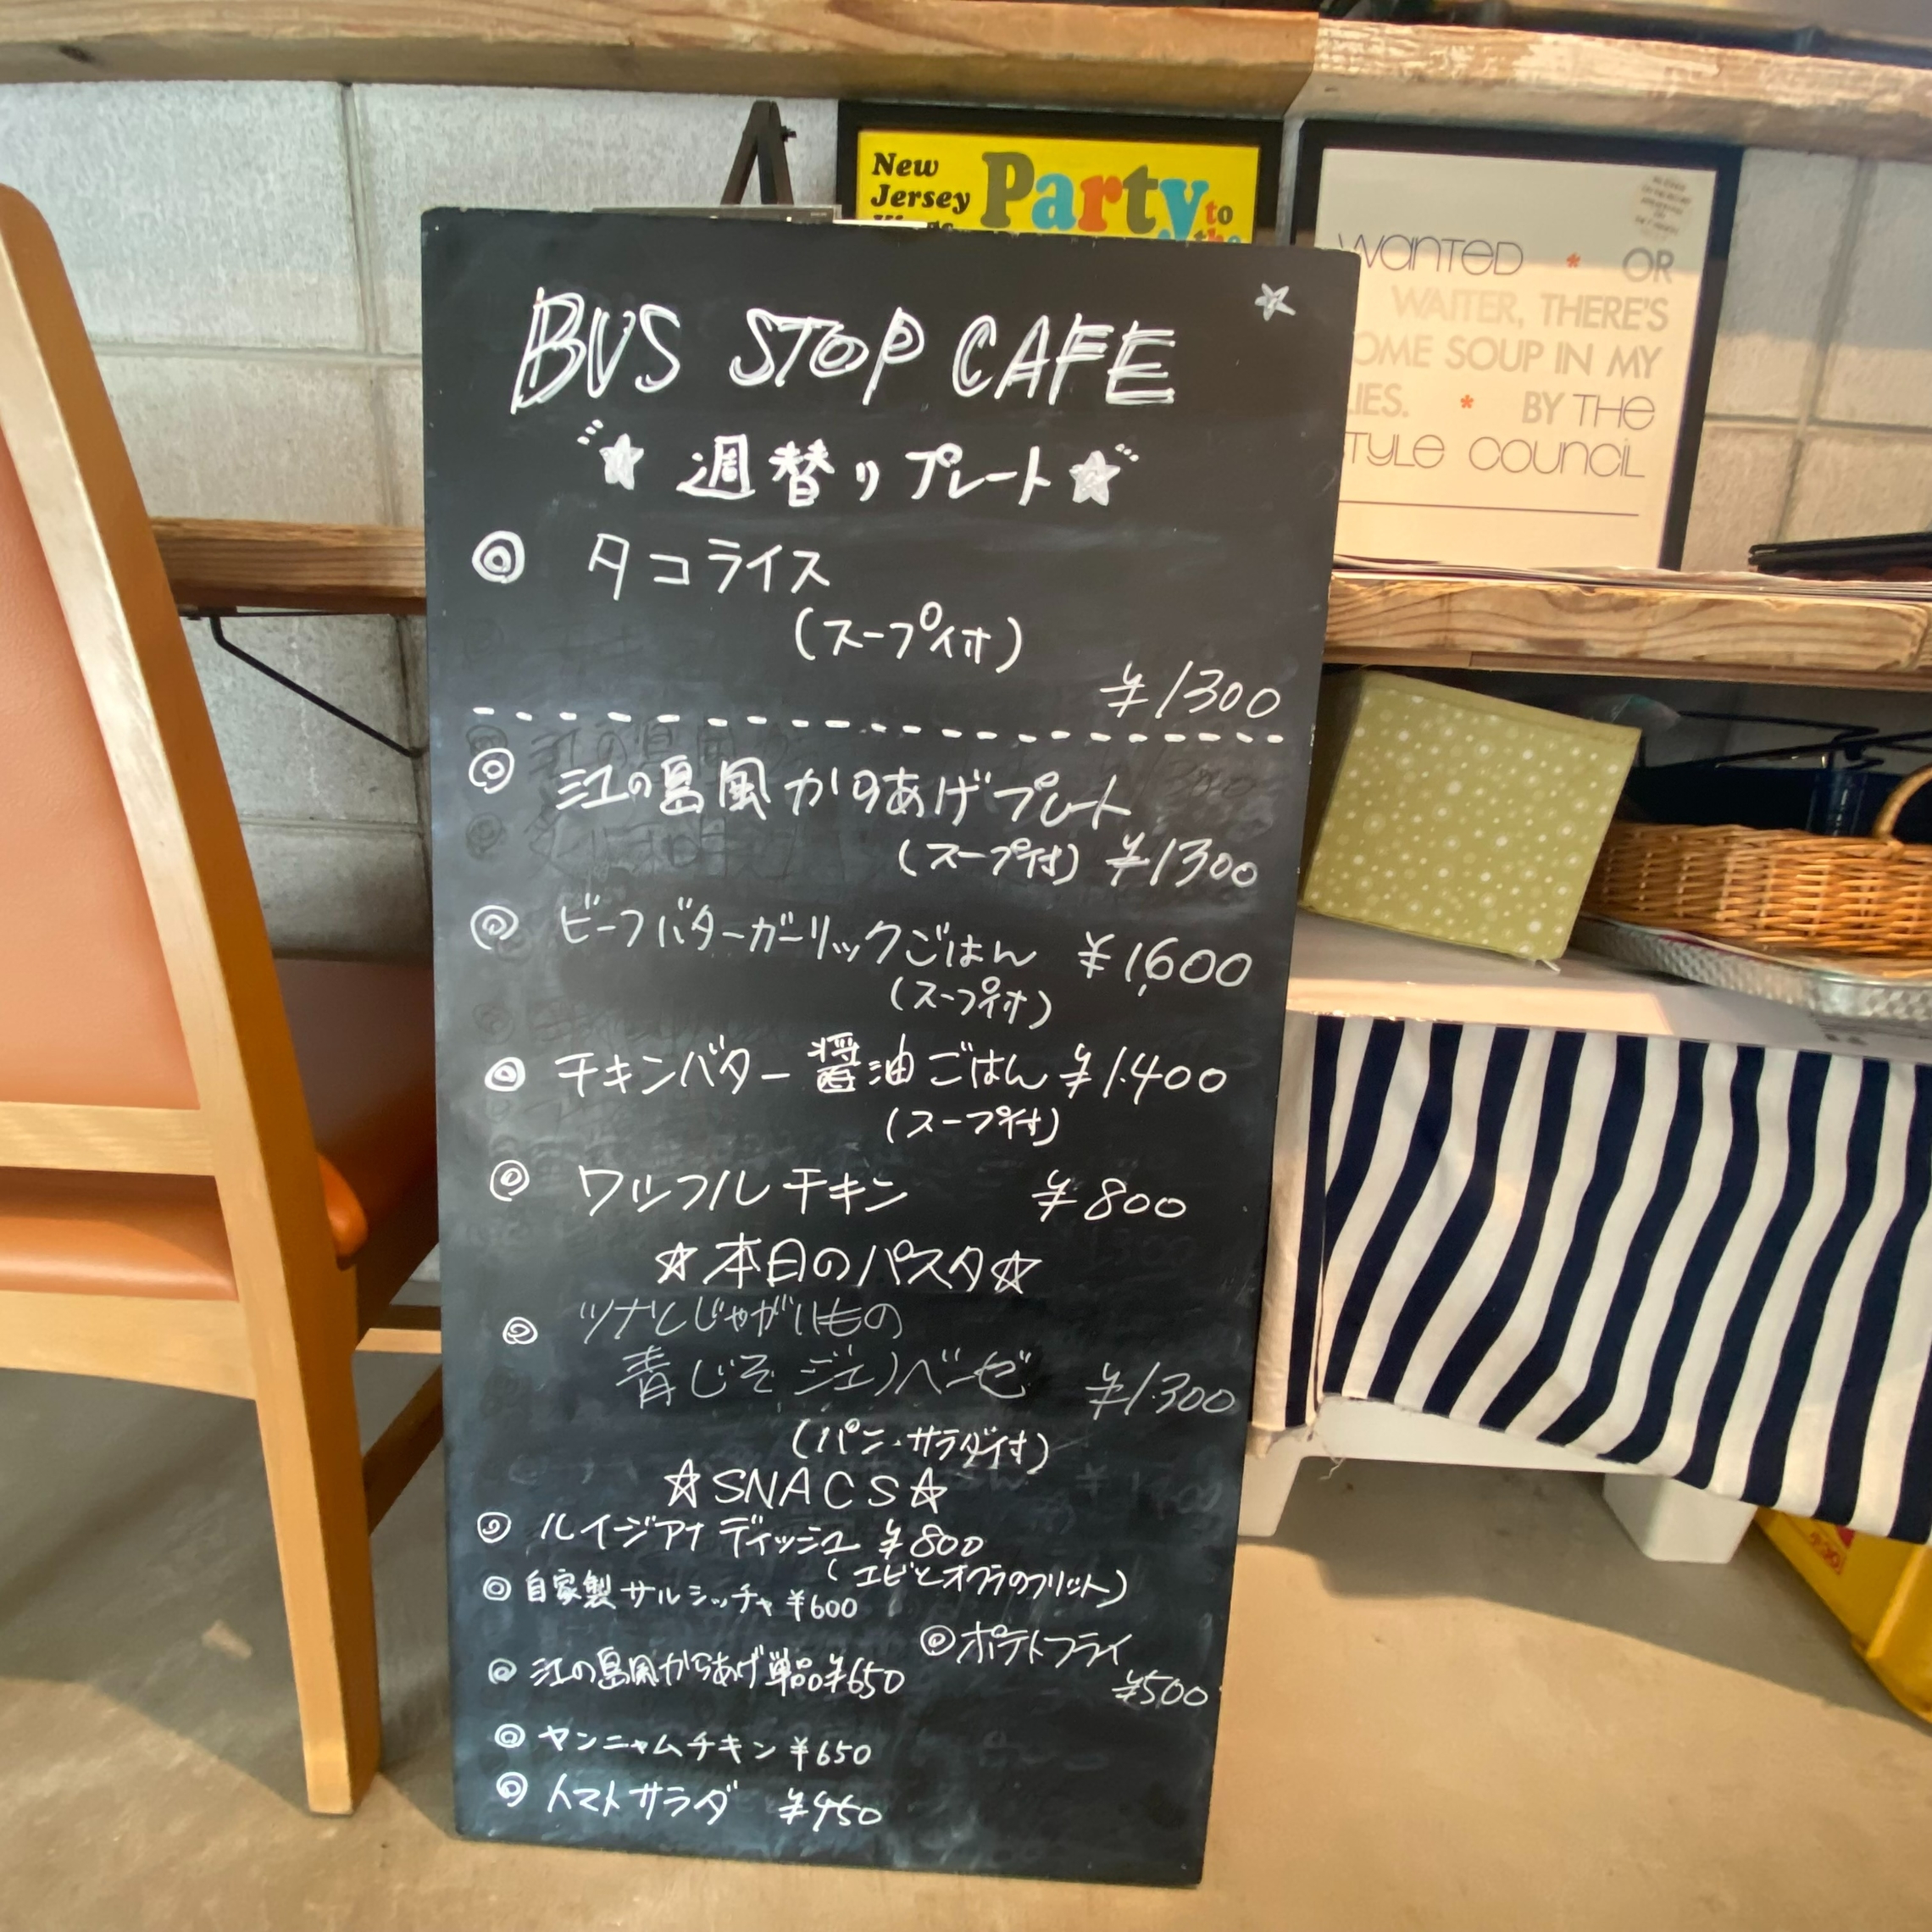 New
Jersey
Party to
the
WANTED * OR
WAITER, THERE'S
OME SOUP IN MY
LIES. * BY THE
TYLE COUNCIL
BUS STOP CAFE ☆
★ 週替りプレート ★
◎ タコライス
(スープ付)
¥1300
◎ 江の島風からあげプレート
(スープ付) ¥1300
◎ ビーフバターガーリックごはん ¥1,600
(スープ付)
◎ チキンバター醤油ごはん ¥1.400
(スープ付)
◎ ワッフルチキン ¥800
☆本日のパスタ☆
◎ ツナとじゃがいもの
青じそジェノベーゼ ¥1.300
(パン・サラダ付)
☆SNACS☆
◎ ルイジアナディッシュ ¥800
(エビとオクラのフリット)
◎ 自家製サルシッチャ ¥600
◎ポテトフライ
¥500
◎ 江の島風からあげ単品¥650
◎ ヤンニャムチキン ¥650
◎ トマトサラダ